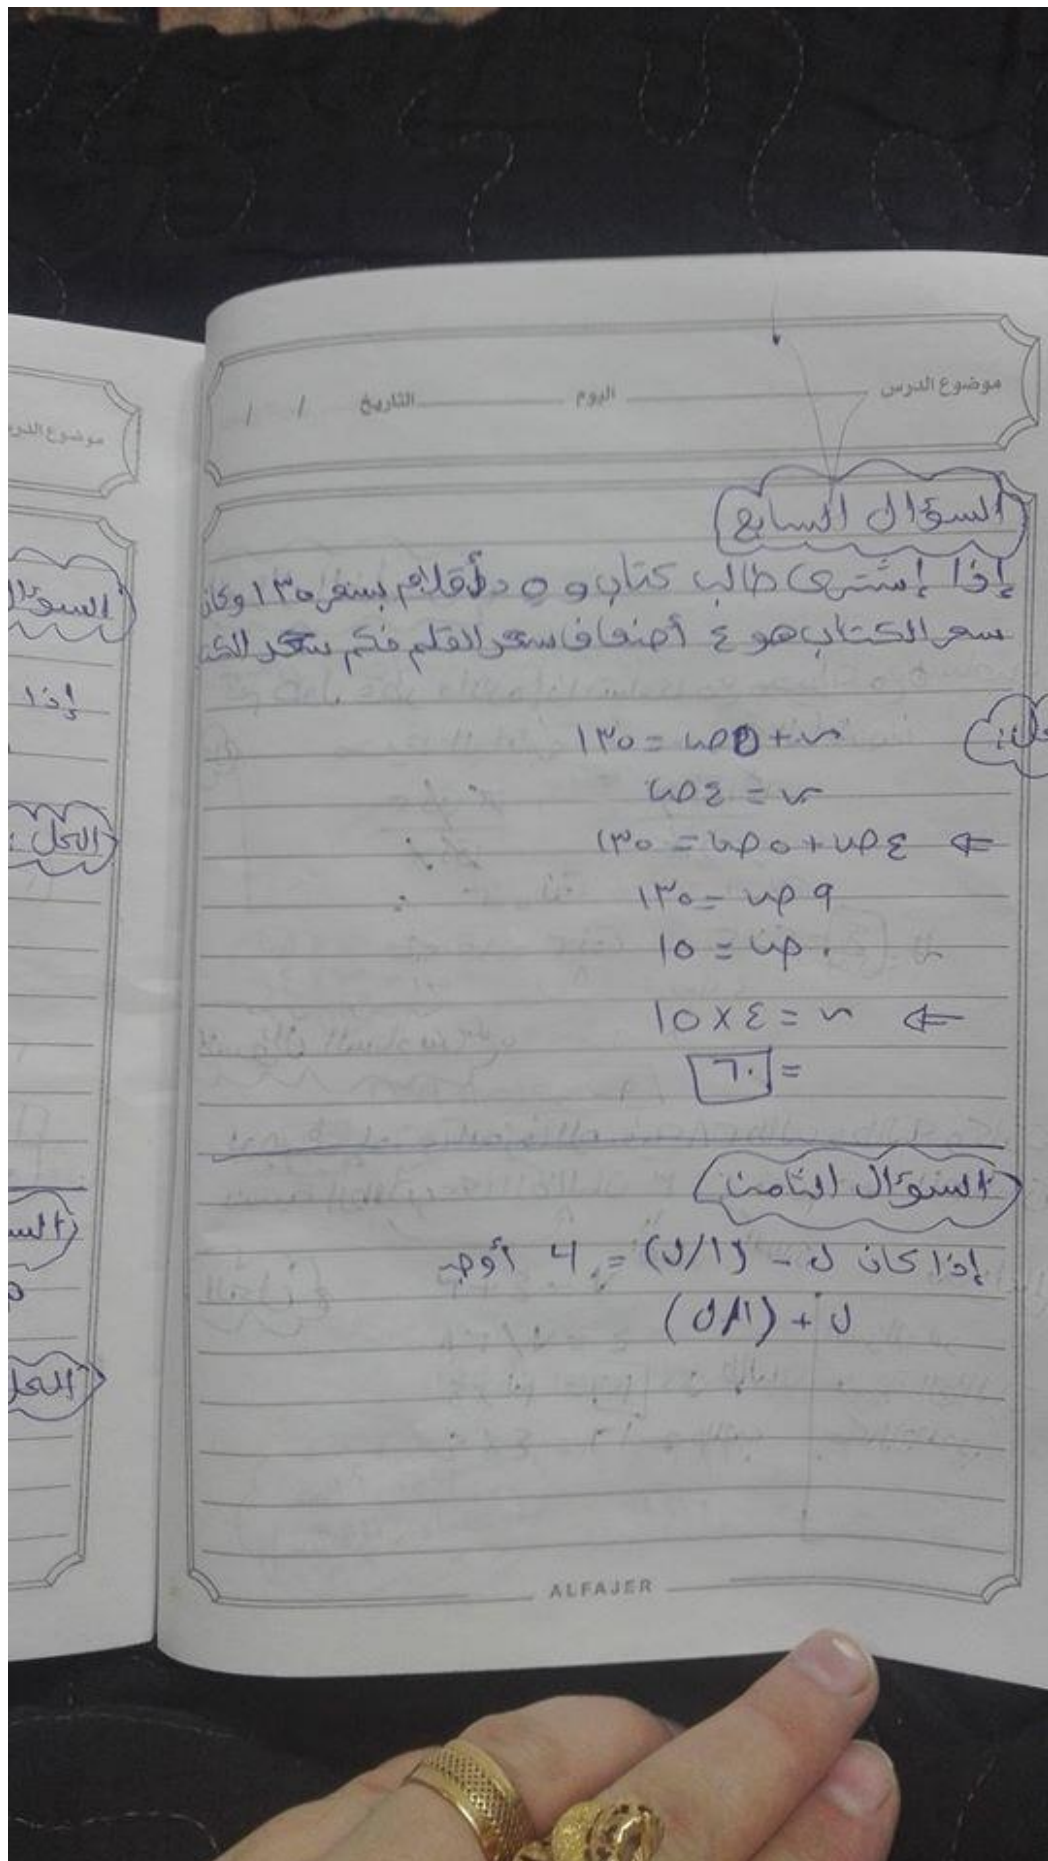 موضوع الدرس اليوم التاريخ / /
السؤال السابع
إذا إشترى طالب كتاب و ٥ أقلام بسعر ١٣٥ وكان
سعر الكتاب هو ٤ أضعاف سعر القلم فكم سعر الكت
س + ٥ص = ١٣٥
س = ٤ص
⇐ ٤ص + ٥ص = ١٣٥
٩ص = ١٣٥
ص = ١٥
⇐ س = ٤ × ١٥
= ٦٠
السؤال الثامن
إذا كان ل - (١/ل) = ٤ أوجد
ل + (١/ل)
ALFAJER
موضوع الدرس
السؤال
إذا
الحل :
الس
الحل